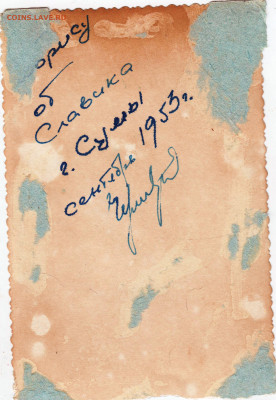 COINS.LAVE.RU
орису
от
Славика
г. Сумы
сентябрь 1953 г.